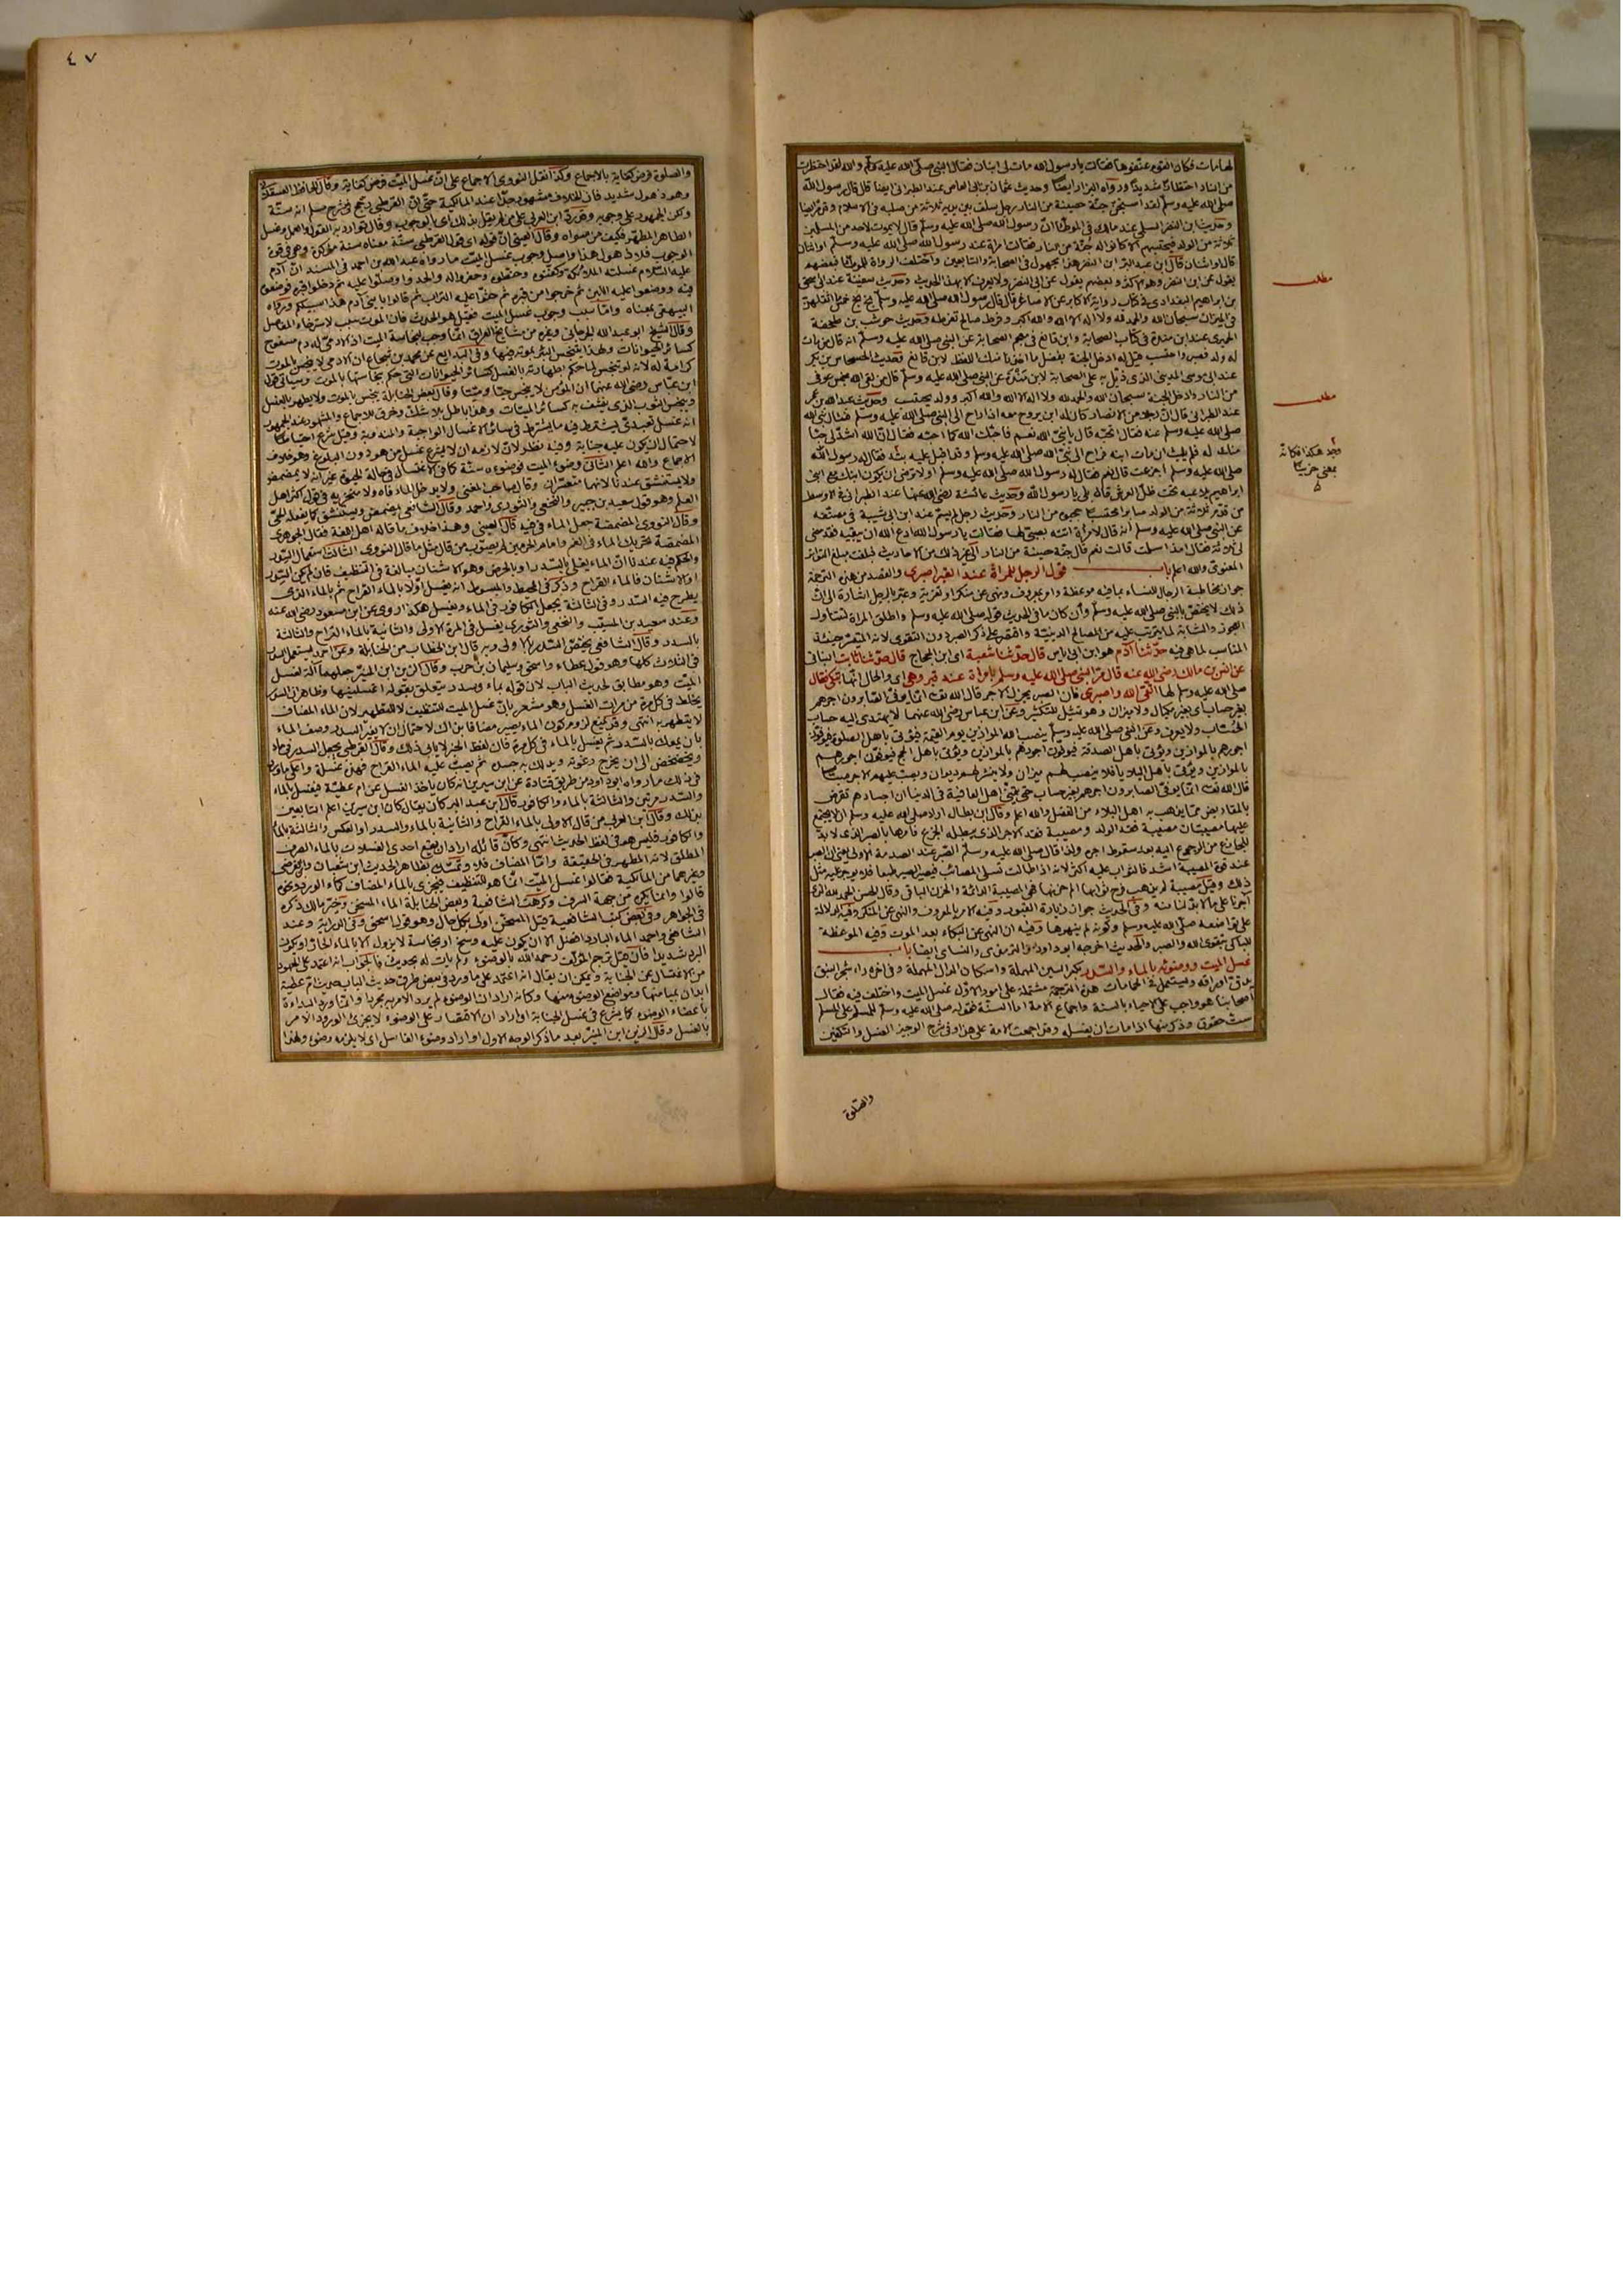 لها مات فكان القوم عنّفوها فقالت يا رسول الله مات لى ابنان فقال النبى صلى الله عليه وسلم والله لقد احتظرت
من النار احتظارا شديدا ورواه البزار ايضا وحديث عثمان بن ابى العاص عند الطبرانى ايضا قال قال رسول الله
صلى الله عليه وسلم لقد استجنّ جنّة حصينة من النار رجل سلف بين يديه ثلاثة من صلبه فى الاسلام
وحديث ابن النضر السلمى عند مالك فى الموطأ انّ رسول الله صلى الله عليه وسلم قال لا يموت لاحد من المسلمين
ثلاثة من الولد فيحتسبهم الا كانوا له جنّة من النار فقالت امرأة عند رسول الله صلى الله عليه وسلم او اثنان
قال او اثنان قال ابن عبد البر ابن النضر هذا مجهول فى الصحابة والتابعين واختلف الرواة للموطأ فبعضهم
يقول عن ابن النضر وهو الاكثر وبعضهم يقول عن ابى النضر ولا يعرف الا بهذا الحديث وحديث سفينة عند
بن ابراهيم البغدادى فى كتاب رواية الاكابر عن الاصاغر قال قال رسول الله صلى الله عليه وسلم بخ بخ خمس ما اثقلهنّ
فى الميزان سبحان الله والحمد لله ولا اله الا الله والله اكبر وفرط صالح تفرطه وحديث حوشب بن طخمة
الحميرى عند ابن مندة فى كتاب الصحابة وابن قانع فى معجم الصحابة عن النبى صلى الله عليه وسلم انه قال من مات
له ولد فصبر واحتسب قيل له ادخل الجنة بفضل ما اخذنا منك اللفظ لابن قانع وحديث الحسحاس بن بكر
عند ابى موسى المدينى الذى ذيّل به على الصحابة لابن مندة عن النبى صلى الله عليه وسلم قال من لقى الله بخمس عوفى
من النار وادخل الجنة سبحان الله والحمد لله ولا اله الا الله والله اكبر وولد يحتسب وحديث عبد الله بن عمر
عند الطبرانى قال انّ رجلا من الانصار كان له ابن يروح معه اذا راح الى النبى صلى الله عليه وسلم فسأل نبى الله
صلى الله عليه وسلم عنه فقال اتحبّه قال يا نبىّ الله نعم فاحبّك الله كما احبّه فقال انّ الله اشدّ لى حبّا
منك له فلم يلبث ان مات ابنه فراح الى نبىّ الله صلى الله عليه وسلم وقد اقبل عليه بثّه فقال له رسول الله
صلى الله عليه وسلم اجزعت قال نعم فقال له رسول الله صلى الله عليه وسلم اولا ترضى ان يكون ابنك مع ابنى
ابراهيم يلاعبه تحت ظلّ العرش قال بلى يا رسول الله وحديث عائشة رضى الله عنها عند الطبرانى فى الاوسط
من قدّم ثلاثة من الولد صابرا محتسبا حجبوه من النار وحديث رجل لم يسمّ عند ابن ابى شيبة فى مصنّفه
عن النبى صلى الله عليه وسلم أنه قال لامرأة اتته بصبىّ لها فقالت يا رسول الله ادع الله ان يبقيه فقد مضى
لى ثلاثة فقال امذ اسلمت قالت نعم قال جنّة حصينة من النار الى غير ذلك من الاحاديث
المعنوى والله اعلم باب قول الرجل للمرأة عند القبر اصبرى والقصد من هذه الترجمة
جواز مخاطبة الرجال للنساء بما فيه موعظة وامر بمعروف ونهى عن منكر او تعزية وعبّر بالرجل اشارة الى انّ
ذلك لا يختصّ بالنبى صلى الله عليه وسلم وان كان ما فى الحديث قوله صلى الله عليه وسلم واطلق المراة لتتناول
العجوز والشابة لما يترتب عليه من المصالح الدينيّة واقتصر على ذكر الصبر دون التقوى لانه المتيسّر حينئذ
المناسب لما هى فيه حدّثنا آدم هو ابن ابى اياس قال حدّثنا شعبة اى ابن الحجاج قال حدّثنا ثابت البنانى
عن انس بن مالك رضى الله عنه قال مرّ النبى صلى الله عليه وسلم بامرأة عند قبر وهى اى والحال انّها تبكى فقال
صلى الله عليه وسلم لها اتّقى الله واصبرى فان الصبر يجزل الاجر قال الله تعالى انّما يوفّى الصابرون اجرهم
بغير حساب اى بغير مكيال ولا ميزان وهو تمثيل للتكثير وعن ابن عباس رضى الله عنهما لا يهتدى اليه حساب
الحسّاب ولا يعرف وعن النبى صلى الله عليه وسلم ينصب الله الموازين يوم القيمة فيؤتى باهل الصلوة فيوفّون
اجورهم بالموازين ويؤتى باهل الصدقة فيوفون اجورهم بالموازين ويؤتى باهل الحج فيوفّون اجورهم
بالموازين ويؤتى باهل البلاء فلا ينصب لهم ميزان ولا ينشر لهم ديوان ويصبّ عليهم الاجر صبّا
قال الله تعالى انّما يوفّى الصابرون اجرهم بغير حساب حتى يتمنّى اهل العافية فى الدنيا ان اجسادهم تقرض
بالمقاريض ممّا يذهب به اهل البلاء من الفضل والله اعلم وقال ابن بطال اراد صلى الله عليه وسلم ان لا يجتمع
عليها مصيبتان مصيبة فقد الولد ومصيبة فقد الاجر الذى يبطله الجزع فامرها بالصبر الذى لا بدّ
للجازع من الرجوع اليه بعد سقوط اجره ولذا قال صلى الله عليه وسلم الصبر عند الصدمة الاولى يعنى ان الصبر
عند قوة المصيبة اشد فالثواب عليه اكثر لانه اذا طالت تسلى المصائب فيصير الصبر طبعا فلا يوجر عليه مثل
ذلك وقيل مصيبة لم يذهب فرح ثوابها الم حزنها فهى المصيبة الدائمة والحزن الباقى وقال الحسن الحمد لله الذى
آجرنا على ما لا بدّ لنا منه وفى الحديث جواز زيارة القبور وفيه الامر بالمعروف والنهى عن المنكر وفيه الدلالة
على تواضعه صلى الله عليه وسلم وكونه لم ينهرها وفيه ان النهى عن البكاء بعد الموت وفيه الموعظة
للباكى بتقوى الله والصبر والحديث اخرجه ابو داود والترمذى والنسائى ايضا باب
غسل الميت ووضوئه بالماء والسّدر بكسر السين المهملة واسكان الدال المهملة وفى اخره راء شجر النبق
يدق اوراقه ويستعمل فى الحمامات هذه الترجمة مشتملة على امور الاول غسل الميت واختلف فيه فقال
اصحابنا هو واجب على الاحياء بالسنة واجماع الامة اما السنّة فقوله صلى الله عليه وسلم للمسلم على المسلم
ست حقوق وذكر منها اذا مات ان يغسله وقد اجمعت الامة على هذا وفى شرح الوجيز الغسل والتكفين
والصّلوة
مطلب
مطلب
وجد هكذا فكانه
بمعنى حزنت
٤٧
والصلوة فرض كفاية بالاجماع وكذا نقل النووى الاجماع على انّ غسل الميّت فرض كفاية وقال الحافظ العسقلانى
وهو ذهول شديد فان الخلاف مشهور جدّا عند المالكية حتى انّ القرطبى رجّح فى شرح مسلم انه سنّة
ولكن الجمهور على وجوبه وقد ردّ ابن العربى على من لم يقل بذلك اى بالوجوب وقال توارد به القول والعمل وغسل
الطاهر المطهّر فكيف من سواه وقال العينى انّ قوله اى قول القرطبى سنّة معناه سنة مؤكدة وهى فى قوة
الوجوب فلا ذهول هذا واصل وجوب غسل الميّت ما رواه عبد الله بن احمد فى المسند انّ آدم
عليه السّلام غسلته الملائكة وكفّنوه وحنّطوه وحفروا له والحدوا وصلّوا عليه ثم دخلوا قبره فوضعوه
فيه ووضعوا عليه اللبن ثم خرجوا من قبره ثم حثّوا عليه التراب ثم قالوا يا بنى آدم هذا سبيلكم ورواه
البيهقى بمعناه وامّا سبب وجوب غسل الميت فقيل هو الحدث فان الموت سبب لاسترخاء المفاصل
وقال الشيخ ابو عبد الله الجرجانى وغيره من مشايخ العراق انّما وجب لنجاسة الميت اذ الادمىّ له دم مسفوح
كسائر الحيوانات ولهذا يتنجّس البئر بموته فيها وفى البدائع عن محمد بن شجاع ان الادمى لا ينجس بالموت
كرامة له لانه لو تنجس لما حكم بطهارته بالغسل كسائر الحيوانات التى حكم بنجاستها بالموت وسياتى قول
ابن عبّاس رضى الله عنهما ان المؤمن لا ينجس حيّا وميّتا وقال بعض الحنابلة ينجس بالموت ولا يطهر بالغسل
وينجس الثوب الذى ينشف به كسائر الميتات وهذا باطل بلا شك وخرق للاجماع والمشهور عند الجمهور
انه غسل تعبدىّ يشترط فيه ما يشترط فى سائر الاغسال الواجبة والمندوبة وقيل شرع احتياطا
لاحتمال ان يكون عليه جنابة وفيه نظر لانّ لازمه ان لا يشرع غسل من هو دون البلوغ وهو خلاف
الاجماع والله اعلم الثانى وضوء الميت فوضوءه سنّة كما فى الاغتسال فى حالة الحيوة غير انه لا يمضمض
ولا يستنشق عندنا لانهما متعسّران وقال صاحب المغنى ولا يدخل الماء فاه ولا منخريه فى قول اكثر اهل
العلم وهو قول سعيد بن جبير والنخعى والثورى واحمد وقال الشافعى يمضمض ويستنشق كما يفعله الحىّ
وقال النووى المضمضة جعل الماء فى فيه قال العينى وهذا خلاف ما قاله اهل اللغة فقال الجوهرى
المضمضة تحريك الماء فى الفم وامام الحرمين لم يصوّب من قال مثل ما قال النووى الثالث استعمال السّدر
والحكم فيه عندنا انّ الماء يغلى بالسّدر او بالحرض وهو الاشنان مبالغة فى التنظيف فان لم يكن السّدر
او الاشنان فالماء القراح وذكر فى المحيط والمبسوط انه يغسل اوّلا بالماء القراح ثم بالماء الذى
يطرح فيه السّدر وفى الثالثة يجعل الكافور فى الماء ويغسل هكذا روى عن ابن مسعود رضى الله عنه
وعند سعيد بن المسيّب والنخعى والثورى يغسل فى المرة الاولى والثانية بالماء القراح والثالثة
بالسدر وقال الشافعى يختصّ السّدر بالاولى وبه قال ابن الخطاب من الحنابلة وعن احمد يستعمل السدر
فى الثلاث كلها وهو قول عطاء واسحق وسليمان بن حرب وقال الزين ابن المنيّر جعلهما آلة لغسل
الميّت وهو مطابق لحديث الباب لان قوله بماء وسدر يتعلق بقوله اغسلنها وظاهره ان السدر
يخلط فى كل مرة من مرات الغسل وهو مشعر بانّ غسل الميت للتنظيف لا للتطهير لان الماء المضاف
لا يتطهر به انتهى وقد يمنع لزوم كون الماء يصير مضافا بذلك لاحتمال ان لا يغيّر السدر وصف الماء
بان يمعك بالسّدر ثم يغسل بالماء فى كل مرة فان لفظ الخبر لا يابى ذلك وقال القرطبى يجعل السدر فى ماء
ويخضخض الى ان يخرج رغوته ويدلك به جسده ثم يصبّ عليه الماء القراح فهذه غسلة واعلى ما ورد
فى ذلك ما رواه ابو داود من طريق قتادة عن ابن سيرين انه كان ياخذ الغسل عن ام عطيّة فيغسل بالماء
والسّدر مرتين والثالثة بالماء والكافور قال ابن عبد البر كان يقال كان ابن سيرين اعلم التابعين
بذلك وقال ابن العربى من قال الاولى بالماء القراح والثانية بالماء والسدر او العكس والثالثة بالماء
والكافور فليس هو فى لفظ الحديث انتهى وكانّ قائله اراد ان يقع احدى الغسلات بالماء الصرف
المطلق لانه المطهر فى الحقيقة وامّا المضاف فلا وتمسّك بظاهر الحديث ابن شعبان وابن الفرضى
وغيرهما من المالكية فقالوا غسل الميّت انّما هو للتنظيف فيجزى بالماء المضاف كماء الورد ونحوه
قالوا وانما يكره من جهة السرف وكرهت الشافعية وبعض الحنابلة الماء المسخن وخيّر مالك ذكره
فى الجواهر وفى بعض كتب الشافعية قيل المسخّن اولى بكل حال وهو قول اسحق وفى الدراية وعند
الشافعى واحمد الماء البارد افضل الا ان يكون عليه وسخ او نجاسة لا يزول الا بالماء الحار او يكون
البرد شديدا فان قيل ترجم المؤلف رحمه الله بالوضوء ولم يات له بحديث فالجواب انه اعتمد على المعهود
من الاغتسال عن الجنابة ويمكن ان يقال انه اعتمد على ما ورد فى بعض طرق حديث الباب حديث ام عطية
ابدان بميامنها ومواضع الوضوء منها وكانه اراد ان الوضوء لم يرد الامر به مجرّدا وانما ورد البداءة
باعضاء الوضوء كما يشرع فى غسل الجنابة او اراد ان الاقتصار على الوضوء لا يجزئ لورود الامر
بالغسل وقال الزين ابن المنيّر بعد ما ذكر الوجه الاول او اراد وضوء الغاسل اى لا يلزمه وضوء ولهذا